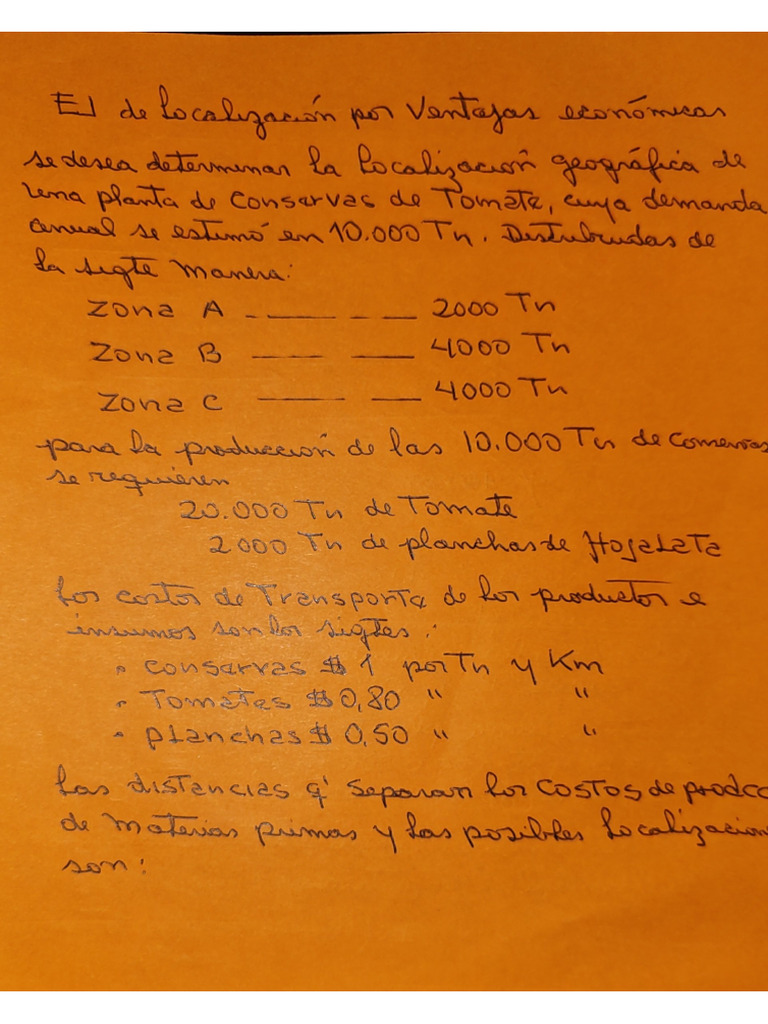 El de localización por Ventajas económicas
se desea determinar la localización geográfica de
una planta de conservas de Tomate, cuya demanda
anual se estimó en 10.000 Tn. Distribuidas de
la sigte manera:
Zona A - ——— - — 2000 Tn
Zona B —— —— 4000 Tn
Zona C ——— —— 4000 Tn
para la producción de las 10.000 Tn de conservas
se requieren
20.000 Tn de Tomate
2000 Tn de planchas de Hojalata
Los costos de Transporte de los productos e
insumos son los sigtes:
• conservas $ 1 por Tn y Km
• Tomates $ 0,80 " "
• planchas $ 0,50 " "
Las distancias q' separan los costos de prodcc
de materias primas y las posibles localizacion
son: